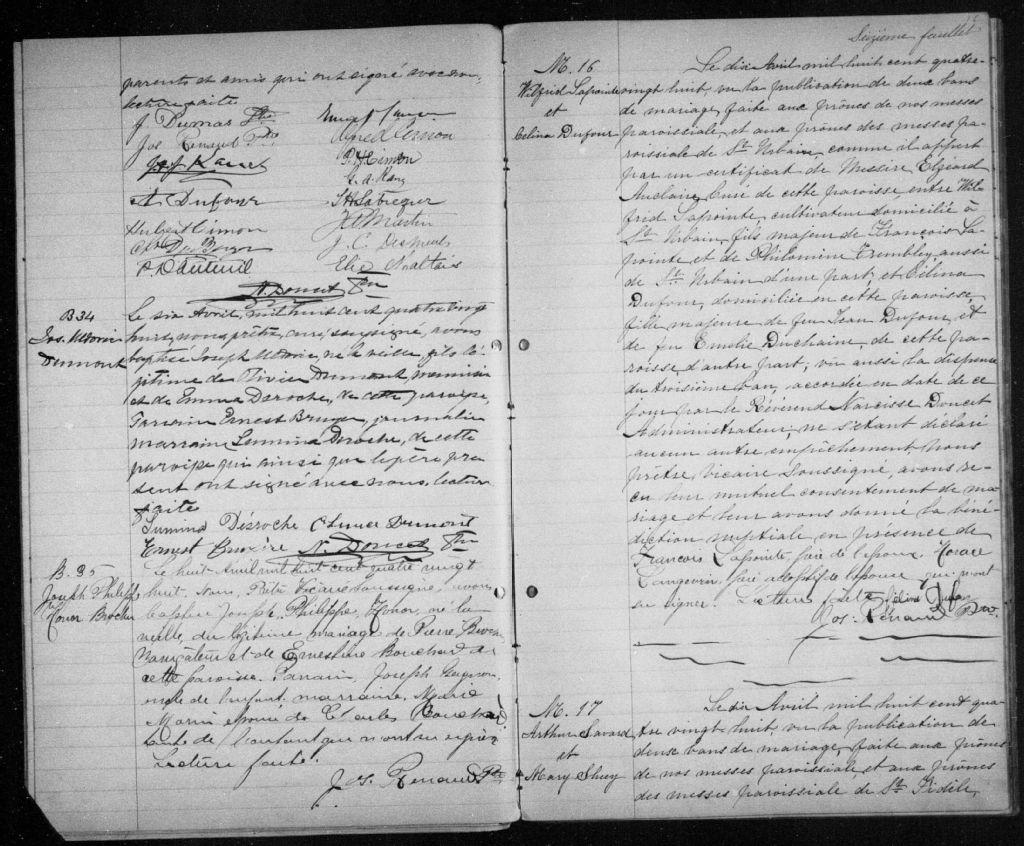 parents et amis qui ont signé avec nous,
lecture faite
J Dumas Ptre
Jos Renaud Ptre
A Dufour
Hubert Cimon
P. D'Auteuil
P. H Cimon
J. C. Desmeules
N. Doucet Ptre
B 34
Jos.
Dumont
Le six Avril, mil huit cent quatre vingt
huit, nous prêtre, curé, soussigné, avons
baptisé Joseph né la veille, fils lé-
gitime de Olivier Dumont, menuisier
et de Emma Deroche, de cette paroisse,
Parrain Ernest journalier
marraine Lumina Deroche, de cette
paroisse qui ainsi que le père pré-
sent ont signé avec nous, lecture
faite
Lumina Désroche Dumont
Ernest N. Doucet Ptre
B. 35
Joseph Philippe
Honor
Le huit Avril mil huit cent quatre vingt
huit. Nous, Prêtre Vicaire soussigné, avons
baptisé Joseph, Philippe, Honor, né la
veille, du légitime mariage de Pierre
Navigateur et de Ernestine Bouchard de
cette paroisse. Parrain, Joseph
oncle de l'enfant, marraine,
Morin épouse de Charles Bouchard
tante de l'enfant qui n'ont su signer
Lecture faite.
Jos. Renaud Ptre
Seizième feuillet
M. 16
Wilfrid Lapointe
et
Célina Dufour
Le dix Avril mil huit cent quatre-
vingt huit, vu la publication de deux bans
de mariage, faite aux prônes de nos messes
paroissiale, et aux prônes des messes pa-
roissiale de St. Urbain comme il appert
par un certificat de Messire Elzéard
Auclaire Curé de cette paroisse, entre Wil-
frid Lapointe, cultivateur domicilié à
St. Urbain, fils majeur de François La-
pointe et de Philomène Trembley aussi
de St. Urbain d'une part, et Célina
Dufour, domiciliée en cette paroisse,
fille majeure de feu Jean Dufour, et
de feu Emelie Duchaine, de cette pa-
roisse d'autre part; vu aussi la dispense
du troisième ban, accordée en date de ce
jour par le Révérend Narcisse Doucet
Administrateur; ne s'étant déclaré
aucun autre empêchement; Nous
prêtre, Vicaire Soussigné, avons re-
çu leur mutuel consentement de ma-
riage et leur avons donné la béné-
diction nuptiale en présence de
François Lapointe père de l'époux, Horace
père adoptif de l'épouse qui n'ont
su signer. Lecture faite Célina Dufour
Jos. Renaud Ptre.
M. 17
Arthur Savard
et
Mary Shuey
Le dix Avril mil huit cent qua-
tre vingt huit, vu la publication de
deux bans de mariage, faite aux prônes
de nos messes paroissiale, et aux prônes
des messes paroissiale de St. Fidèle,